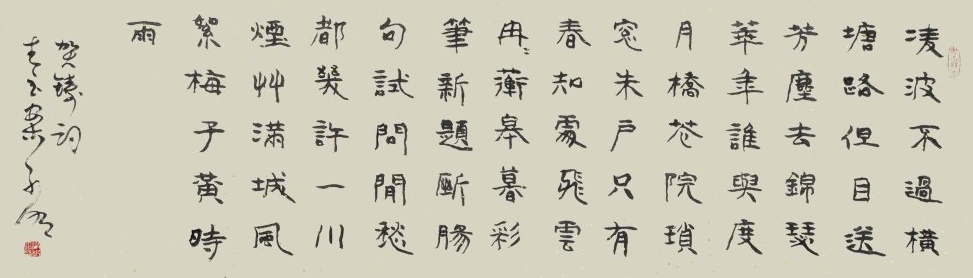 凌波不過橫
塘路但目送
芳塵去錦瑟
華年誰與度
月橋花院瑣
窗朱戶只有
春知處飛雲
冉冉蘅皋暮彩
筆新題斷腸
句試問閒愁
都幾許一川
煙艸滿城風
絮梅子黃時
雨
賀鑄詞
青玉案